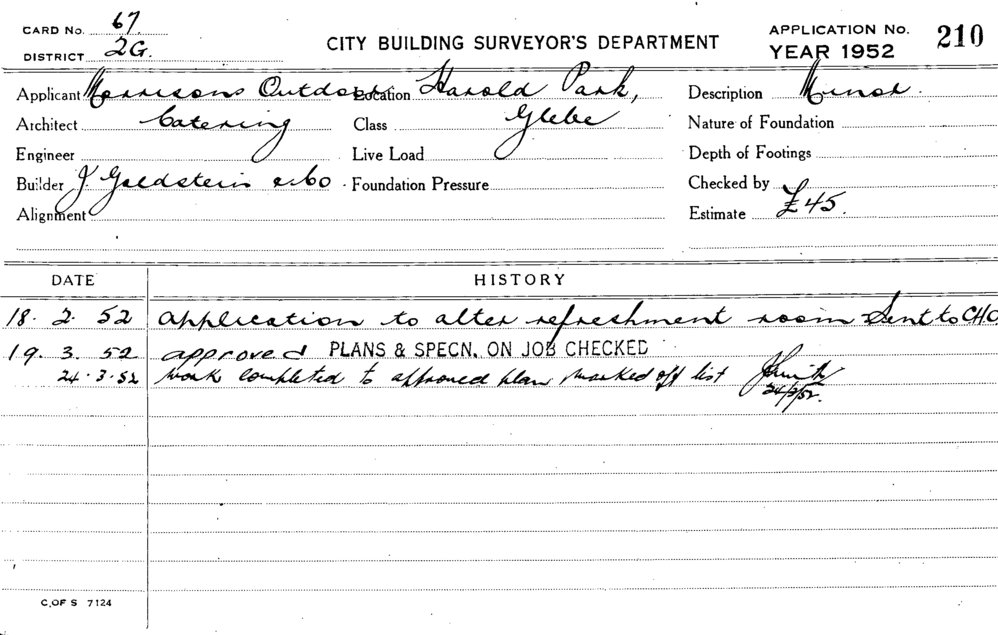 CARD No. 67
DISTRICT 2G.
CITY BUILDING SURVEYOR'S DEPARTMENT
APPLICATION No. 210
YEAR 1952
Applicant Morrisons Outdoor Location Harold Park, Description Minor.
Architect Catering Class Glebe Nature of Foundation
Engineer Live Load Depth of Footings
Builder J. Goldstein & Co Foundation Pressure Checked by
Alignment Estimate £45.
DATE HISTORY
18. 2. 52 application to alter refreshment room Sent to CHO
19. 3. 52 approved PLANS & SPECN. ON JOB CHECKED
24. 3. 52 work completed to approved plan marked off list
24/3/52.
C. OF S 7124